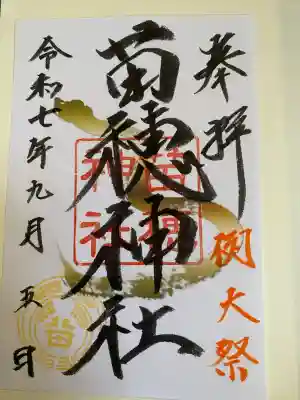 奉拝
例大祭
苗穂神社
苗穂神社
令和七年九月五日